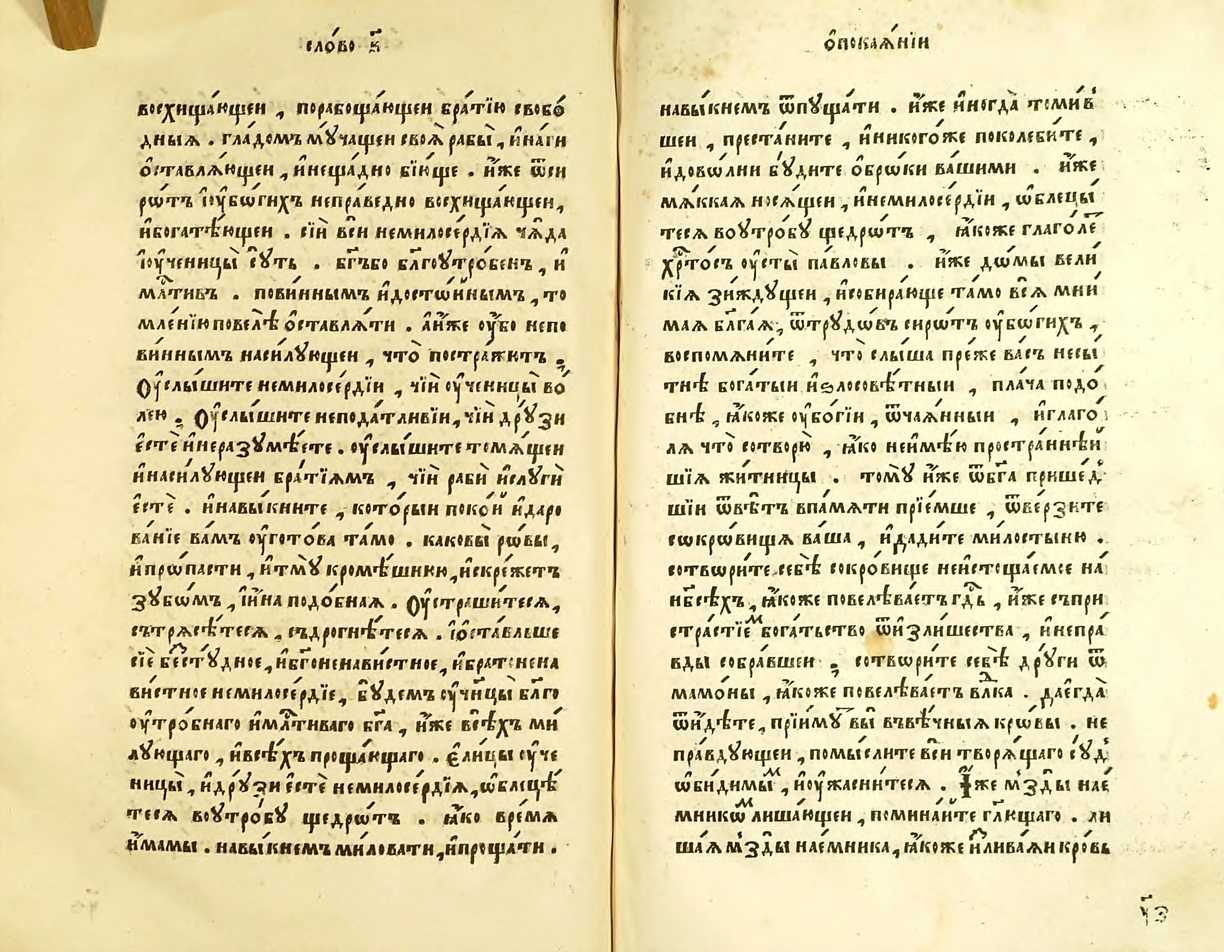 сло́во в҃
восхища́ющеи , порабоща́ющеи бра́тїю свобо́
дныѧ . гла́домъ мꙋ́чащеи своѧ̀ рабы̀ , и҆на́ги
ѡ҆ставлѧ́ющеи , и҆неща́дно бїю́ще . и҆́же ѿси
рѡ́тъ и҆ᲂу҆бѡ́гихъ непра́ведно восхища́ющеи ,
и҆богатѣ́ющеи . сїѝ всѝ немилосе́рдїѧ чѧ́да
и҆ᲂу҆ченицы̀ сꙋ́ть . бг҃ъбо бл҃гоꙋтро́бенъ , и҆
млⷭ҇тивъ . пови́ннымъ и҆досто́йнымъ , то
мле́нїю повелѣ̀ ѡ҆ставлѧ́ти . а҆и҆́же ᲂу҆̀бо непо
ви́ннымъ наси́лꙋющеи , что̀ постра́жꙋтъ ;
Оу҆слы́шите немилосе́рдїи , чїѝ ᲂу҆ченицы̀ бо́
лею ; Оу҆слы́шите непода́тливїи , чїѝ дрꙋ́зи
є҆стѐ и҆неразꙋмѣ́ете . ᲂу҆слы́шите томѧ́щеи
и҆наси́лꙋющеи бра́тїѧмъ , чїѝ рабѝ и҆слꙋгѝ
є҆стѐ . и҆навы́кните , кото́рыи поко́й и҆даро
ва́нїе ва́мъ ᲂу҆гото́ва та́мо . каковы̀ рѡ́вы ,
и҆про́пасти , и҆тмꙋ̀ кромѣ́шнюю , и҆скре́жетъ
зꙋбѡ́мъ , и҆и҆́на подо́бнаѧ . Оу҆страши́тесѧ ,
сътрѧсѣ́тесѧ , съдрогнѣ́тесѧ . и҆ѡ҆ста́вльше
сїѐ бестꙋ́дное , и҆бг҃оненави́стное , и҆братонена
ви́стное немилосе́рдїе , бꙋ́демъ ᲂу҆чн҃цы̀ бл҃го
ᲂу҆тро́бнаго и҆млⷭ҇тиваго бг҃а , и҆́же всѣ́хъ ми
лꙋющаго , и҆всѣ́хъ проща́ющаго . є҆ли́цы ᲂу҆че
ницы̀ , и҆дрꙋ́зи є҆стѐ немилосе́рдїѧ , ѡ҆блецѣ́
тесѧ воꙋтро́бꙋ щедрѡ́тъ . ꙗ҆́ко вре́мѧ
и҆́мамы . навы́кнемъ ми́ловати , и҆проща́ти .
ѡ҆покаѧ́нїи
навы́кнемъ ѿпꙋща́ти . и҆́же и҆ногда̀ томи́в
шеи , преста́ните , и҆никого́же поколеби́те ,
и҆дово́лни бꙋ́дите ѡ҆бро́ки ва́шими . и҆́же
мѧ́ккаѧ носѧ́щеи , и҆немилосе́рдїи , ѡ҆блецы́
тесѧ воꙋтро́бꙋ щедрѡ́тъ , ꙗ҆́коже глаго́ле
хрⷭ҇то́съ ᲂу҆сты̀ па́вловы . и҆́же дѡ́мы вели́
кїѧ зи́ждꙋщеи , и҆собира́юще та́мо всѧ̀ мни
маѧ бл҃га́ѧ , ѿтрꙋдѡ́въ сирѡ́тъ ᲂу҆бѡ́гихъ ,
воспомѧни́те , что̀ слы́ша пре́же ва́съ несы́
тнѣ бога́тыи и҆ѕлосовѣ́тныи , пла́ча подо́
бнѣ , ꙗ҆́коже ᲂу҆бо́гїи , ѿча́ѧнныи , и҆глаго́
лѧ что̀ сотворю̀ , ꙗ҆́ко неи҆мѣ́ю простра́ннѣй
шїѧ жи́тницы . томꙋ̀ и҆́же ѿбг҃а прише́д
шїи ѿвѣ́тъ впа́мѧти прїе́мше , ѿве́рзите
сѡкрѡ́вища ва́ша , и҆дади́те ми́лостыню .
сотвори́те себѣ̀ сокро́вище неи҆стоща́емое на
нб҃сѣ́хъ , ꙗ҆́коже повелѣва́етъ гдⷭ҇ь , и҆́же съпри
стра́стїем бога́тьство ѿи҆зли́шества , и҆непра́
вды собра́вшеи ; сотвори́те себѣ̀ дрꙋ́ги ѿ
мамо́ны , ꙗ҆́коже повелѣва́етъ влⷣка . да є҆гда̀
ѿи҆дѣ́те , прїи́мꙋт вы̀ въвѣ́чныѧ кро́вы . не
пра́вдꙋющеи , помы́слите всѝ творѧ́щаго сꙋ́д
ѡ҆би́димым , и҆ᲂу҆жасни́тесѧ . И҆́же мзды̀ нае́
мником лиша́ющеи , помина́йте гл҃ющаго . ли
ша́ѧ мзды̀ нае́мника , ꙗ҆́коже и҆лива́ѧи кро́вь
н҃з